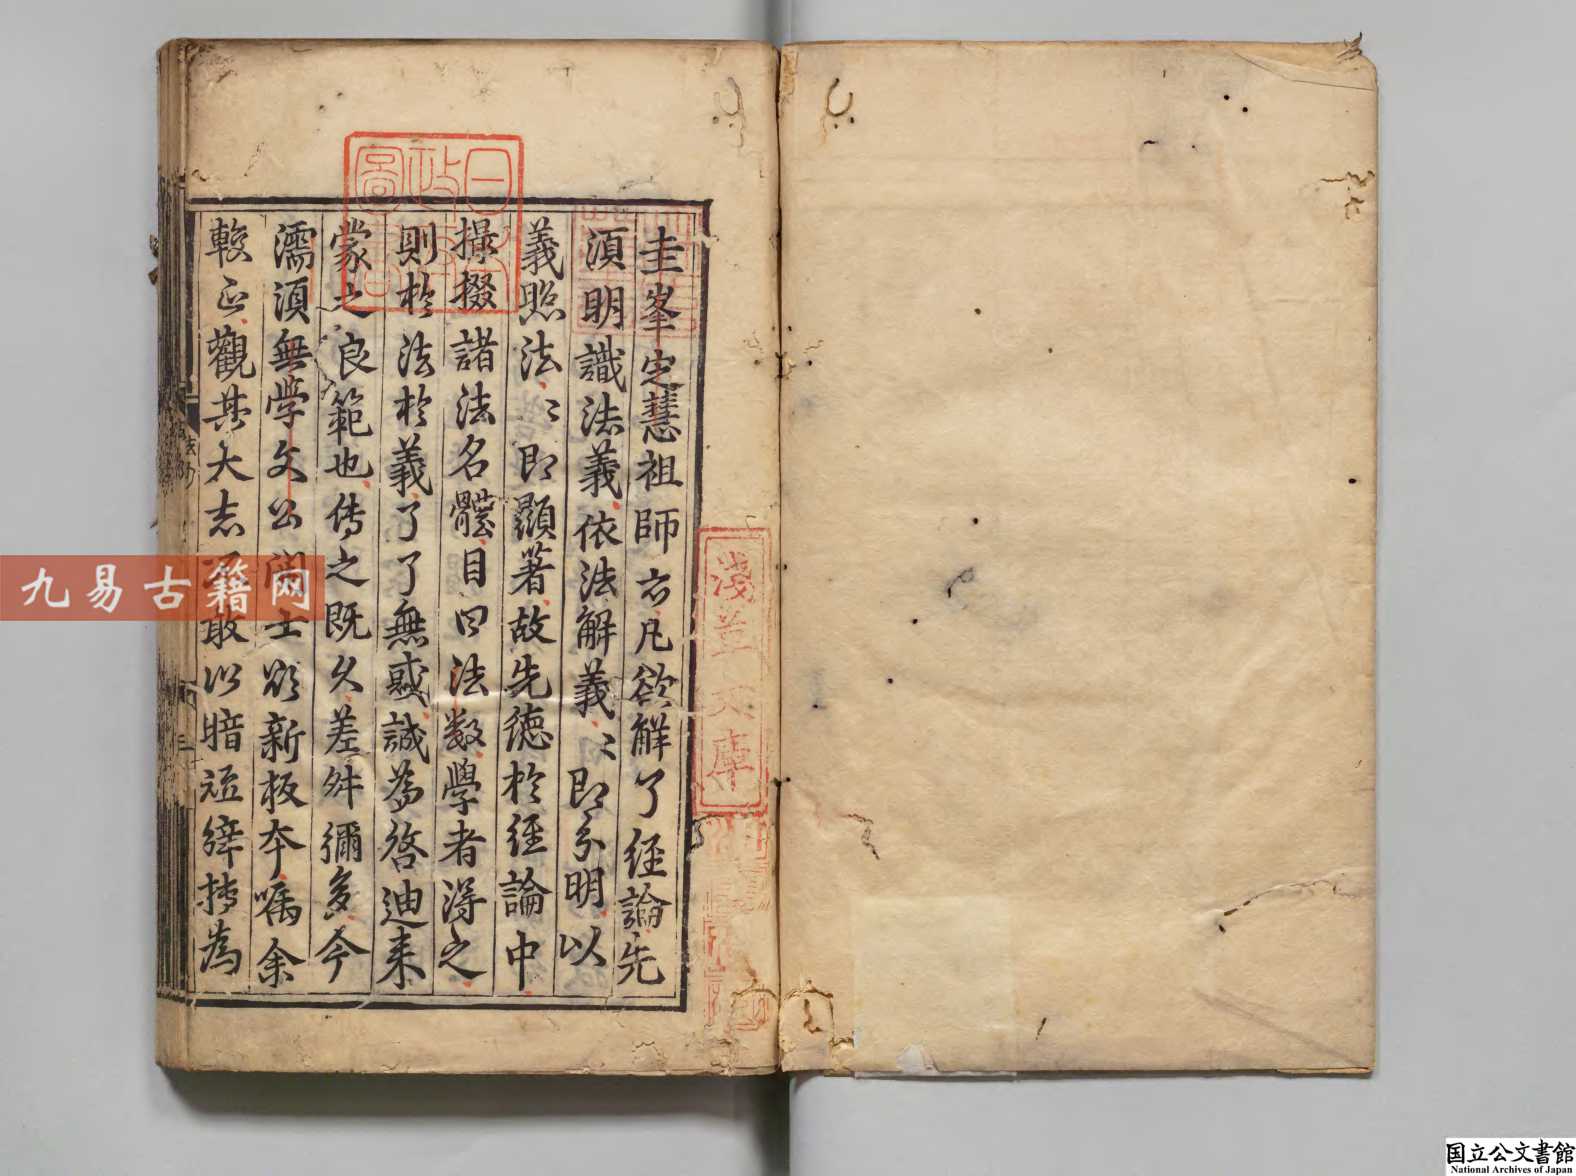 圭峯定慧祖師云凡欲解了経論先
須明識法義依法解義〻即分明以
義照法〻即顯著故先徳於経論中
撮掇諸法名體目曰法数學者得之
則於法於義了了無惑誠為啓迪来
蒙之良範也传之既久差舛彌多今
濡須無学文公 士欲新板夲嘱余
較正觀其大志不敢以暗短縡持為
日本政府圖書
淺草文庫
九易古籍网
国立公文書館
National Archives of Japan